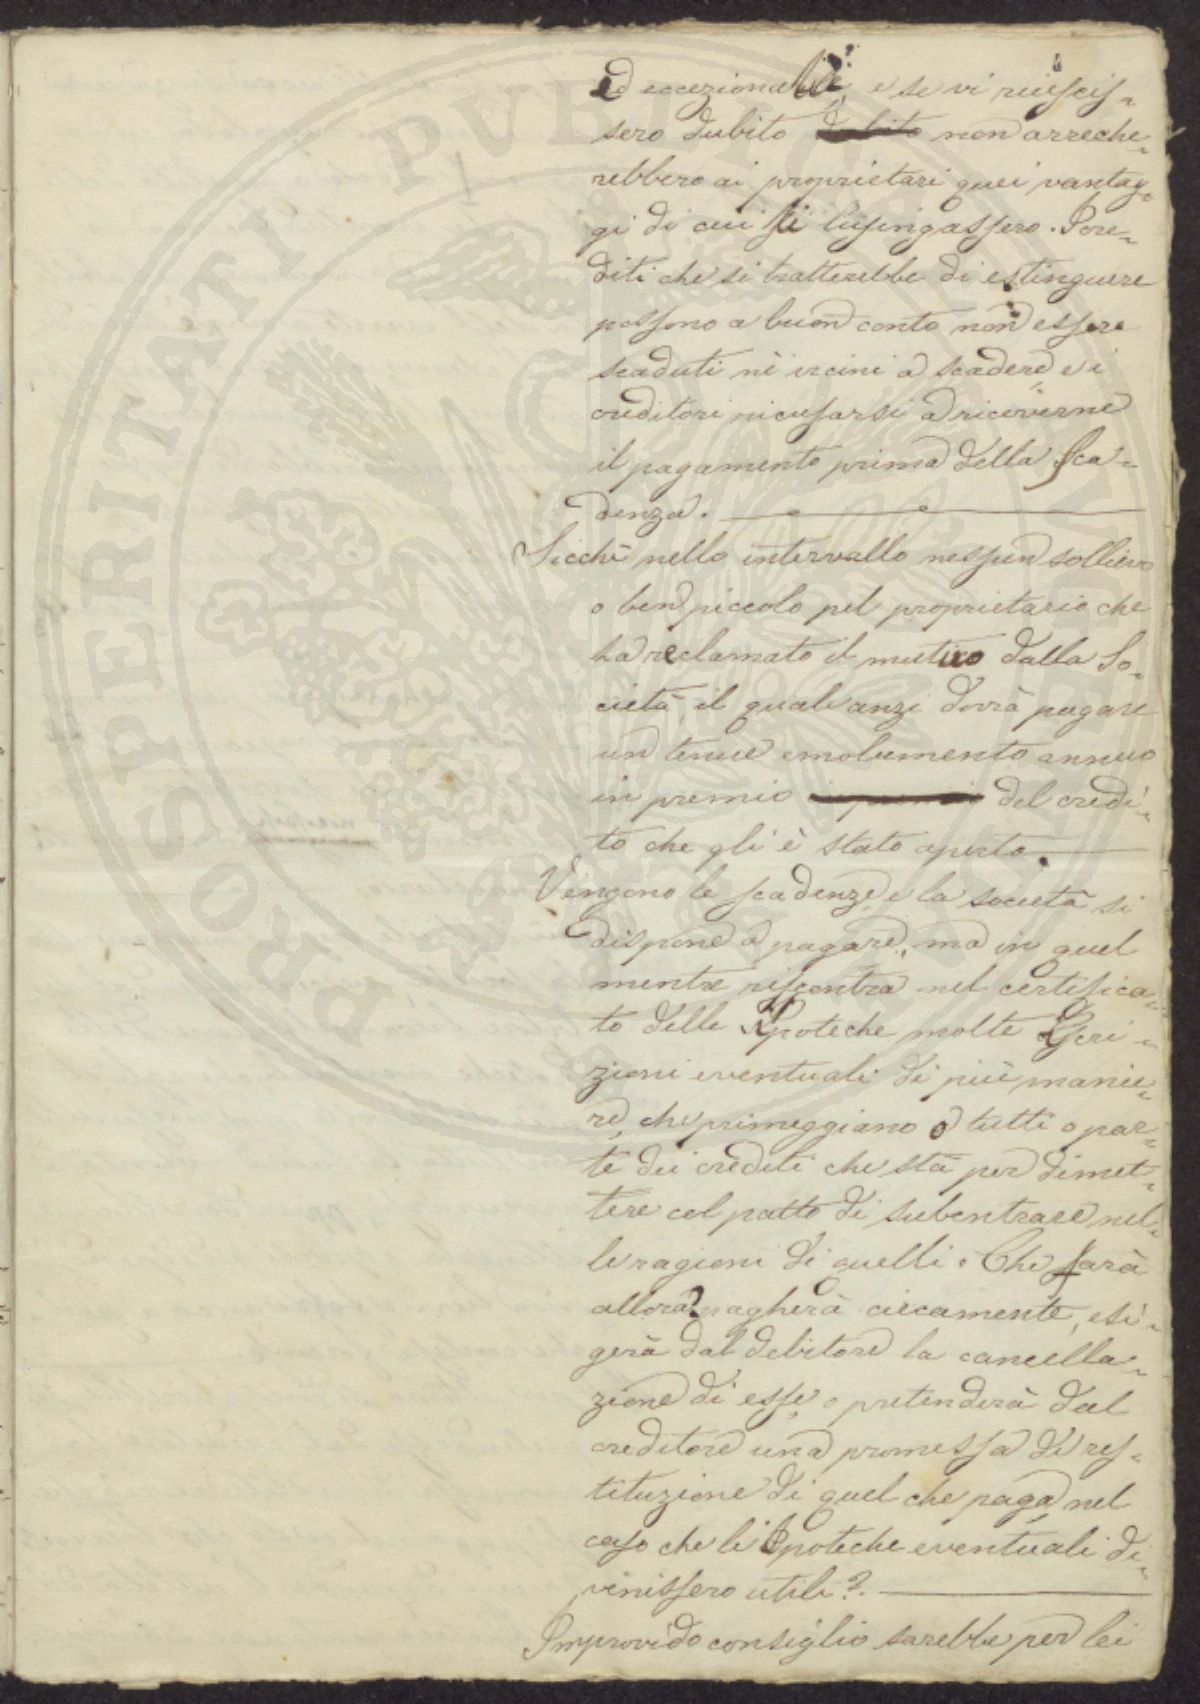 ed eccezionali; e se vi riuscis-
sero dubito dubito non arreche-
rebbero ai proprietari quei vantag-
gi di cui si lusingassero. I cre-
diti che si tratterebbe di estinguere
possono a buon conto non essere
scaduti nè vicini a scadere, e i
creditori ricusarsi a riceverne
il pagamento prima della sca-
denza.
Sicchè nello intervallo nessun sollievo
o ben piccolo pel proprietario che
ha reclamato il mutuo dalla So-
cietà, il quale anzi dovrà pagare
un tenue emolumento annuo
in premio del credi-
to che gli è stato aperto.
Vengono le scadenze, e la società si
dispone a pagare, ma in quel
mentre riscontra nel certifica-
to delle Ipoteche molte Iscri-
zioni eventuali di più manie-
re, che primeggiano o tutti o par-
te dei crediti che stà per dimet-
tere col patto di subentrare nel-
le ragioni di quelli. Che farà
allora? pagherà ciecamente, esi-
gerà dal debitore la cancella-
zione di esse, o pretenderà dal
creditore una promessa di res-
tituzione di quel che paga, nel
caso che le Ipoteche eventuali di-
venissero utili?.
Improvido consiglio sarebbe per lei
PROSPERITATI PVBLICAE